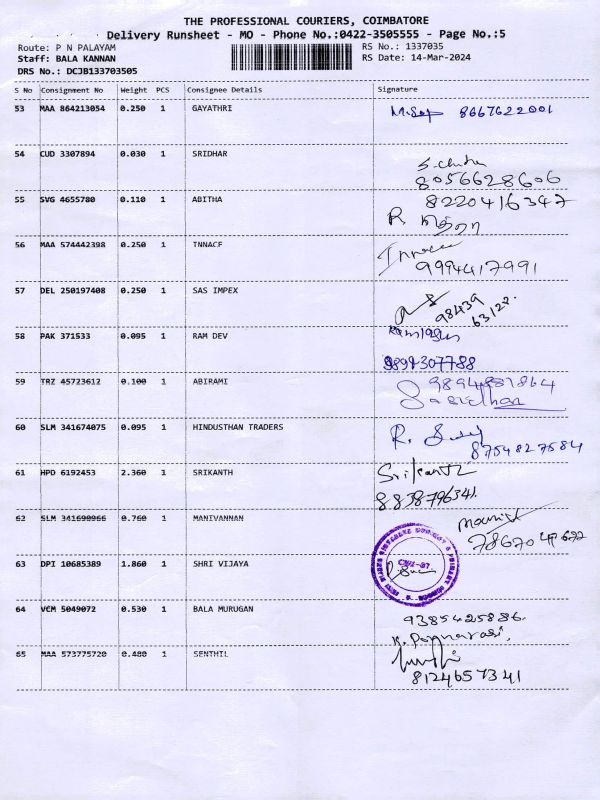 THE PROFESSIONAL COURIERS, COIMBATORE
Delivery Runsheet - MO - Phone No.:0422-3505555 - Page No.:5
Route: P N PALAYAM RS No.: 1337035
Staff: BALA KANNAN RS Date: 14-Mar-2024
DRS No.: DCJB133703505
S No Consignment No Weight PCS Consignee Details Signature
53 MAA 864213054 0.250 1 GAYATHRI 8667622001
54 CUD 3307894 0.030 1 SRIDHAR
8056628606
55 SVG 4655780 0.110 1 ABITHA 8220416347
R.
56 MAA 574442398 0.250 1 TNNACF
9994417991
57 DEL 250197408 0.250 1 SAS IMPEX
98439
63122.
58 PAK 371533 0.095 1 RAM DEV
9894307788
59 TRZ 45723612 0.100 1 ABIRAMI
Sasidhan
60 SLM 341674075 0.095 1 HINDUSTHAN TRADERS R.
8754827584
61 HPD 6192453 2.360 1 SRIKANTH Srikanth
8838796341.
62 SLM 341690966 0.760 1 MANIVANNAN
63 DPI 10685389 1.860 1 SHRI VIJAYA
64 VCM 5049072 0.530 1 BALA MURUGAN
9385425886.
K. Ponnarasi,
65 MAA 573775720 0.480 1 SENTHIL
8124657341